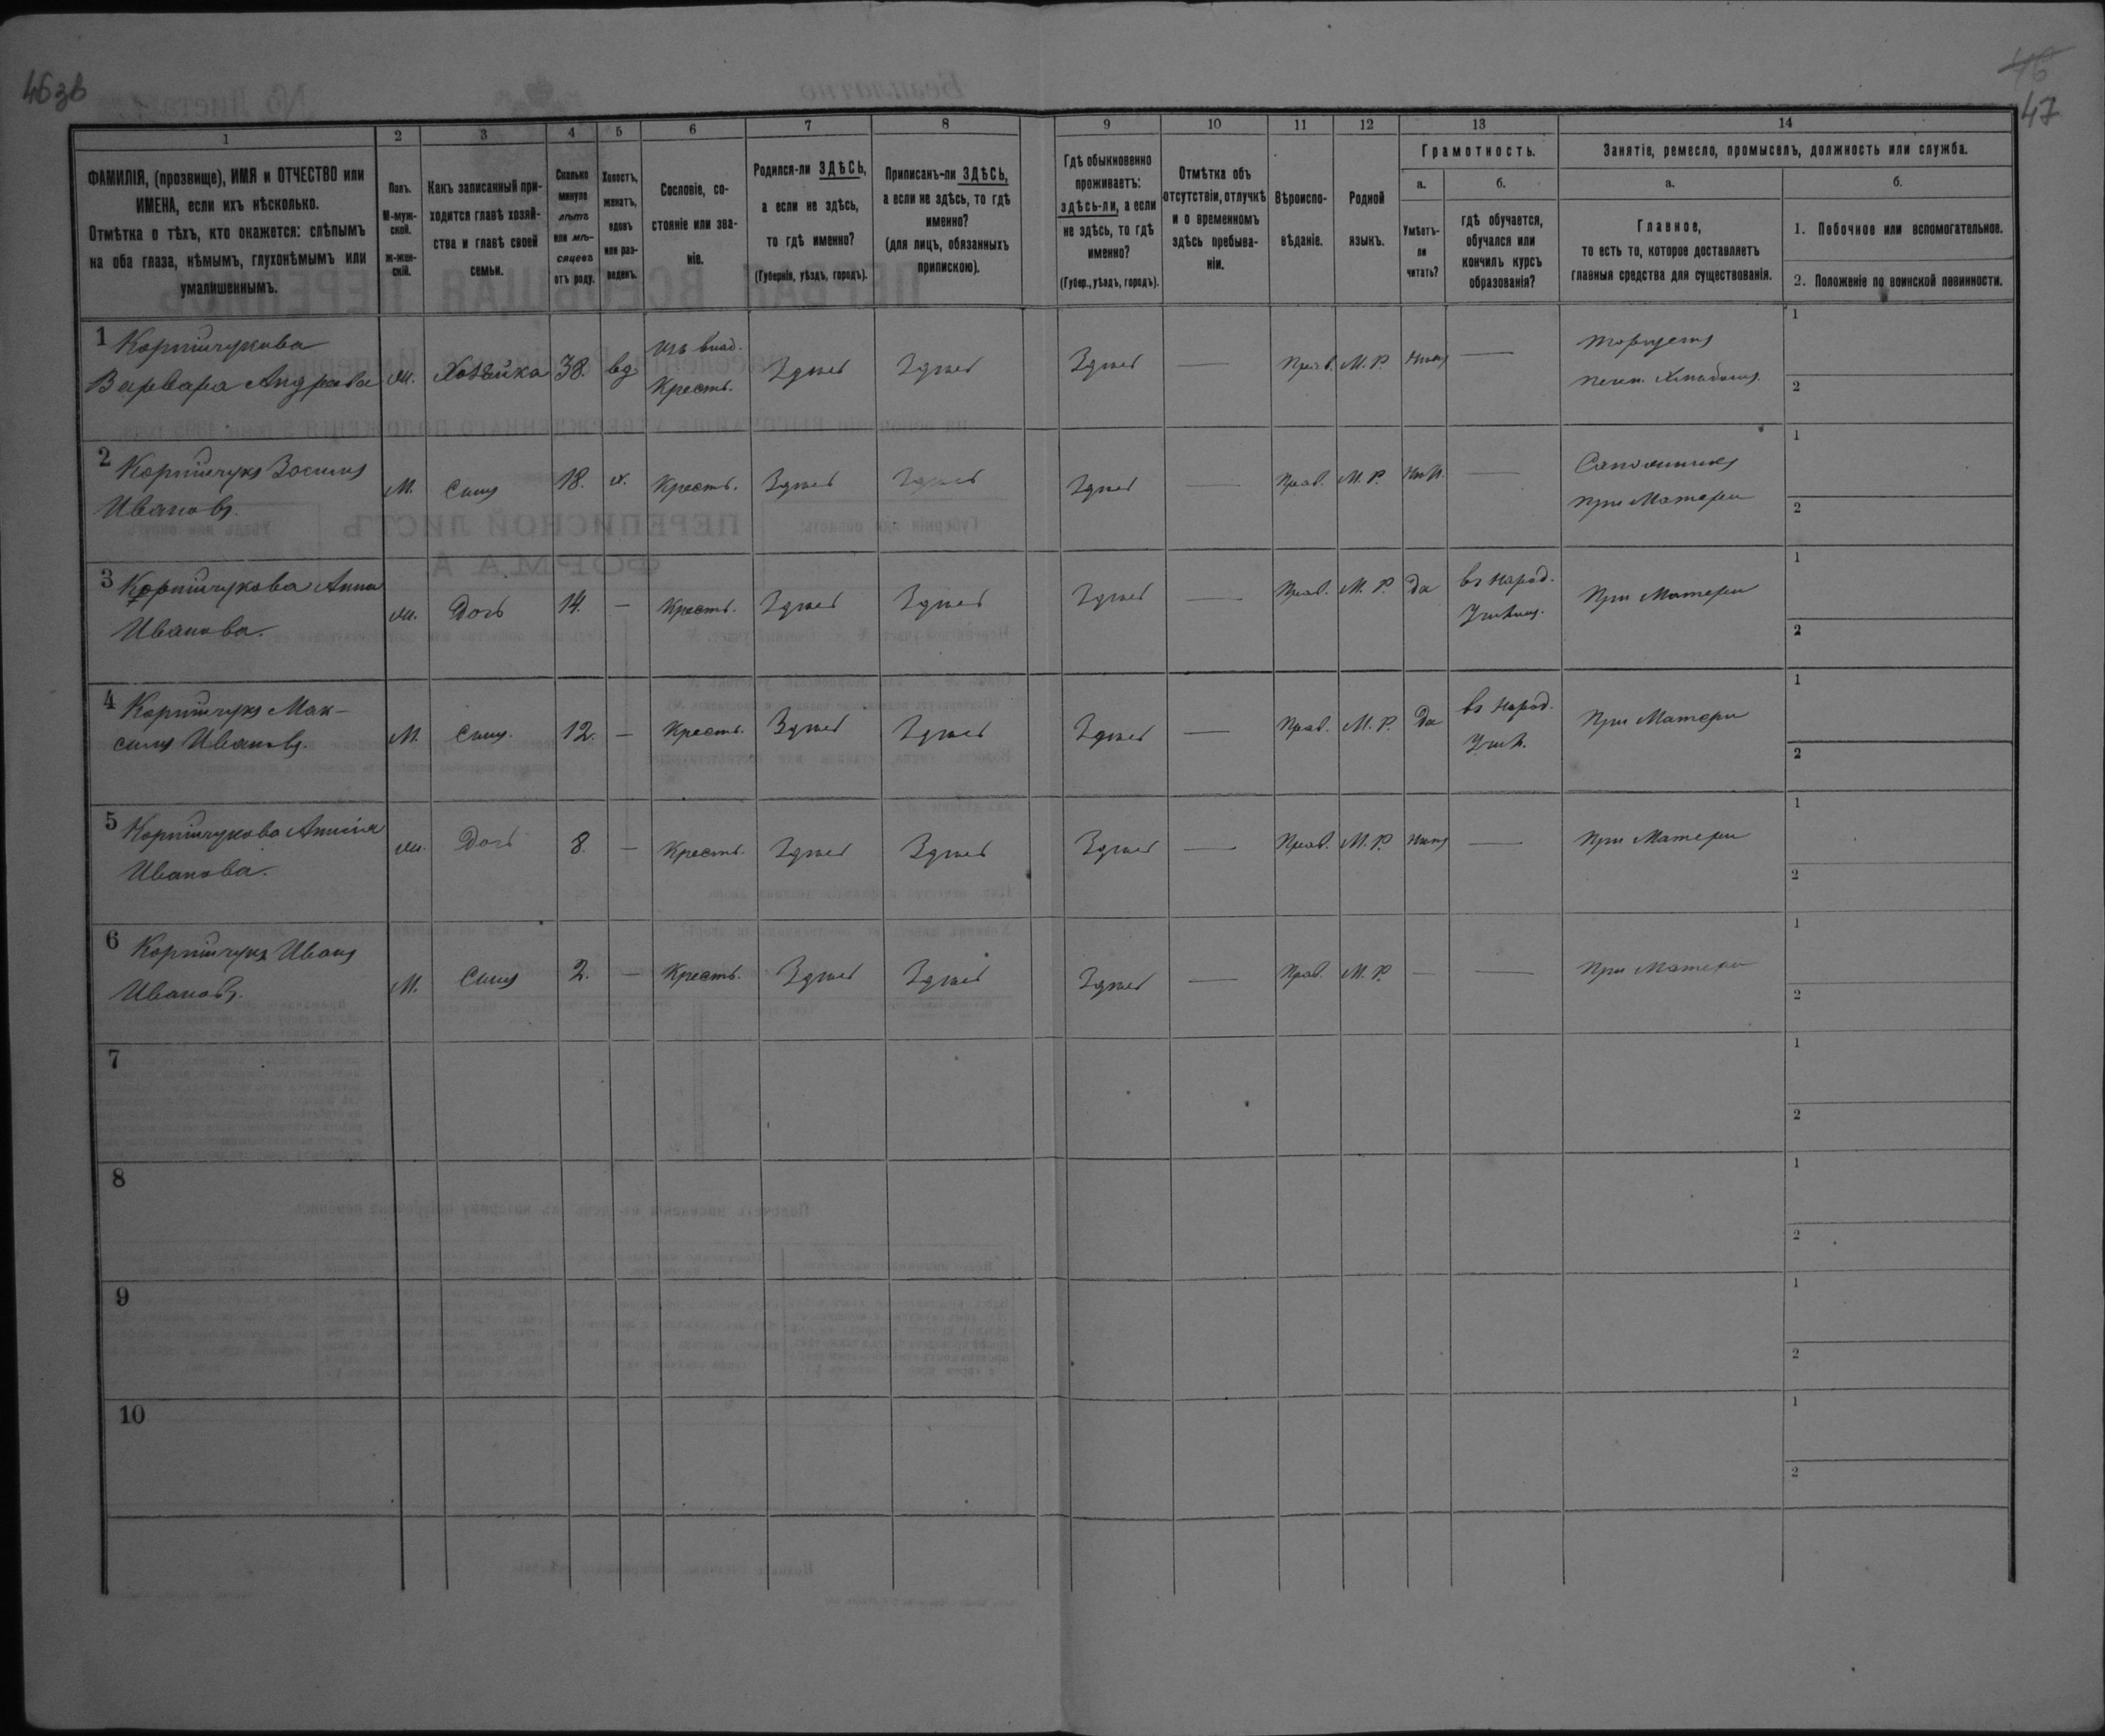 46 зв
46
47
1
2
3
4
5
6
7
8
9
10
11
12
13
14
ФАМИЛІЯ, (прозвище), ИМЯ и ОТЧЕСТВО или
ИМЕНА, если ихъ нѣсколько.
Отмѣтка о тѣхъ, кто окажется: слѣпымъ
на оба глаза, нѣмымъ, глухонѣмымъ или
умалишеннымъ.
Полъ.
М-муж-
ской.
ж-жен-
скій.
Какъ записанный при-
ходится главѣ хозяй-
ства и главѣ своей
семьи.
Сколько
минуло
лѣтъ
или мѣ-
сяцевъ
отъ роду.
Холостъ,
женатъ,
вдовъ
или раз-
веденъ.
Сословіе, со-
стояніе или зва-
ніе.
Родился-ли ЗДѢСЬ,
а если не здѣсь,
то гдѣ именно?
(Губернія, уѣздъ, городъ).
Приписанъ-ли ЗДѢСЬ,
а если не здѣсь, то гдѣ
именно?
(для лицъ, обязанныхъ
припискою).
Гдѣ обыкновенно
проживаетъ:
здѣсь-ли, а если
не здѣсь, то гдѣ
именно?
(Губер., уѣздъ, городъ).
Отмѣтка объ
отсутствіи, отлучкѣ
и о временномъ
здѣсь пребыва-
ніи.
Вѣроиспо-
вѣданіе.
Родной
языкъ.
Грамотность.
а.
Умѣетъ-
ли
читать?
б.
гдѣ обучается,
обучался или
кончилъ курсъ
образованія?
Занятіе, ремесло, промыселъ, должность или служба.
а.
Главное,
то есть то, которое доставляетъ
главныя средства для существованія.
б.
1. Побочное или вспомогательное.
2. Положеніе по воинской повинности.
1
Варвара
ж.
Хозяйка
38.
вд.
Изъ влад.
Крестъ.
Здѣсь
Здѣсь
Здѣсь
—
Прав.
М. Р.
Нѣтъ
—
торгуетъ
печен. Хлѣбомъ.
1
2
2
Ивановъ.
М.
Сынъ
18.
х.
Крестъ.
Здѣсь
Здѣсь
Здѣсь
—
Прав.
М. Р.
—
Сапожникъ
при Матери
1
2
3
Анна
Иванова.
ж.
Дочь
14.
—
Крестъ.
Здѣсь
Здѣсь
Здѣсь
—
Прав.
М. Р.
да
въ народ.
При Матери
1
2
4
Мак-
симъ Ивановъ.
М.
Сынъ.
12.
—
Крестъ.
Здѣсь
Здѣсь
Здѣсь
—
Прав.
М. Р.
Да
въ народ.
При Матери
1
2
5
Иванова.
ж.
Дочь
8.
—
Крестъ.
Здѣсь
Здѣсь
Здѣсь
—
Прав.
М. Р.
Нѣтъ
—
При Матери
1
2
6
Иванъ
Ивановъ.
М.
Сынъ
2.
—
Крестъ.
Здѣсь
Здѣсь
Здѣсь
—
Прав.
М. Р.
—
—
При Матери
1
2
7
1
2
8
1
2
9
1
2
10
1
2